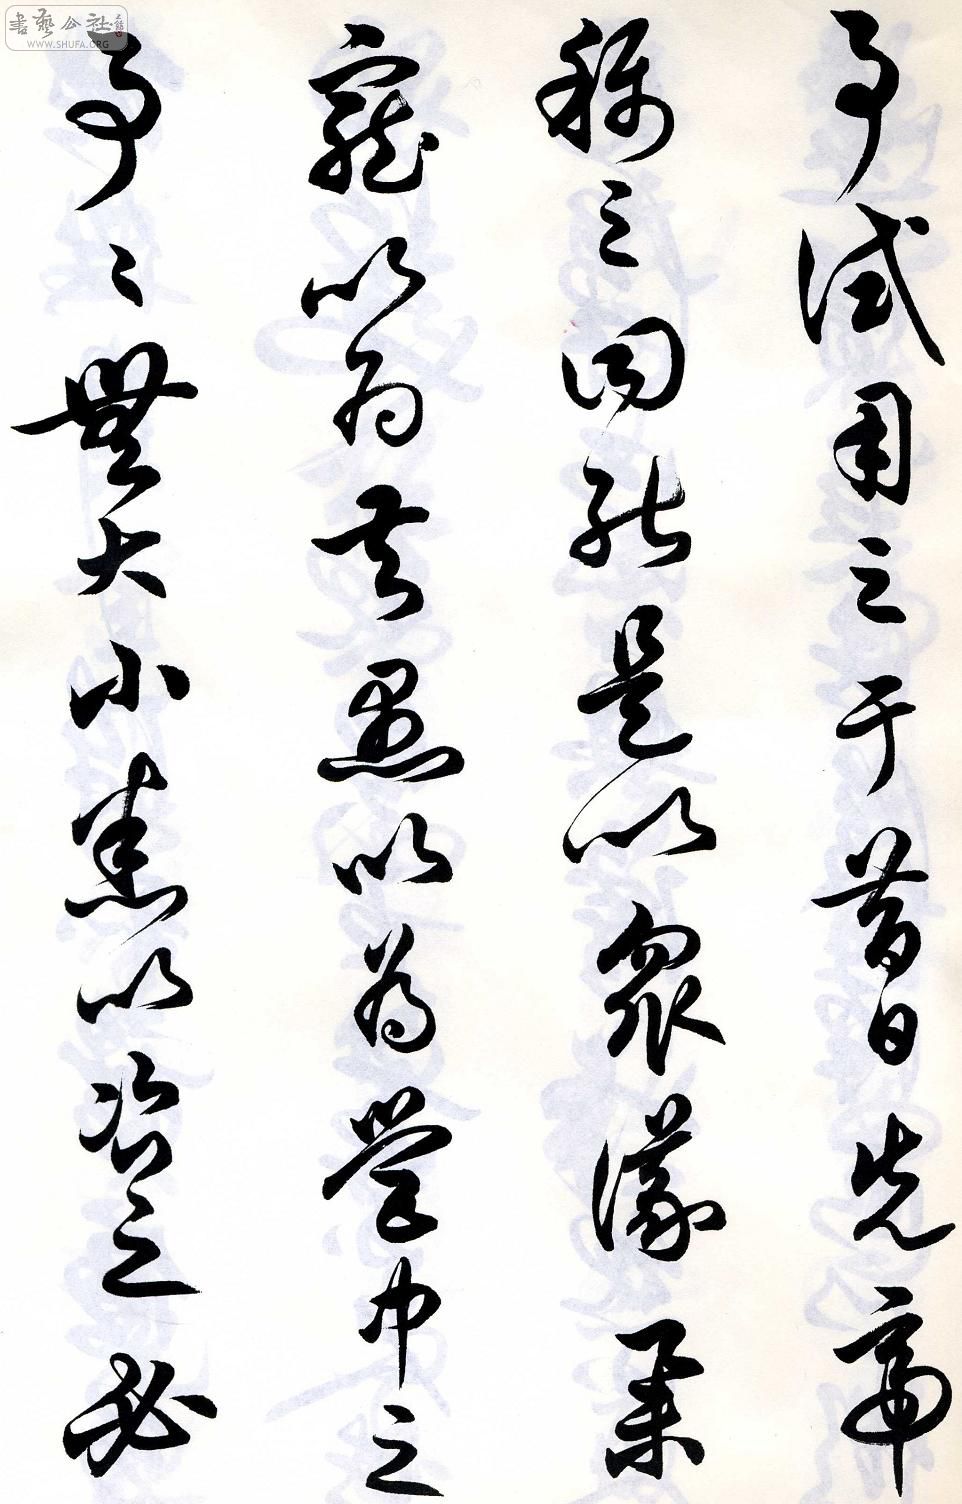 事試用之于昔日先帝
稱之曰能是以眾議舉
寵以為督愚以為營中之
事〻無大小悉以咨之必
書藝公社
WWW.SHUFA.ORG